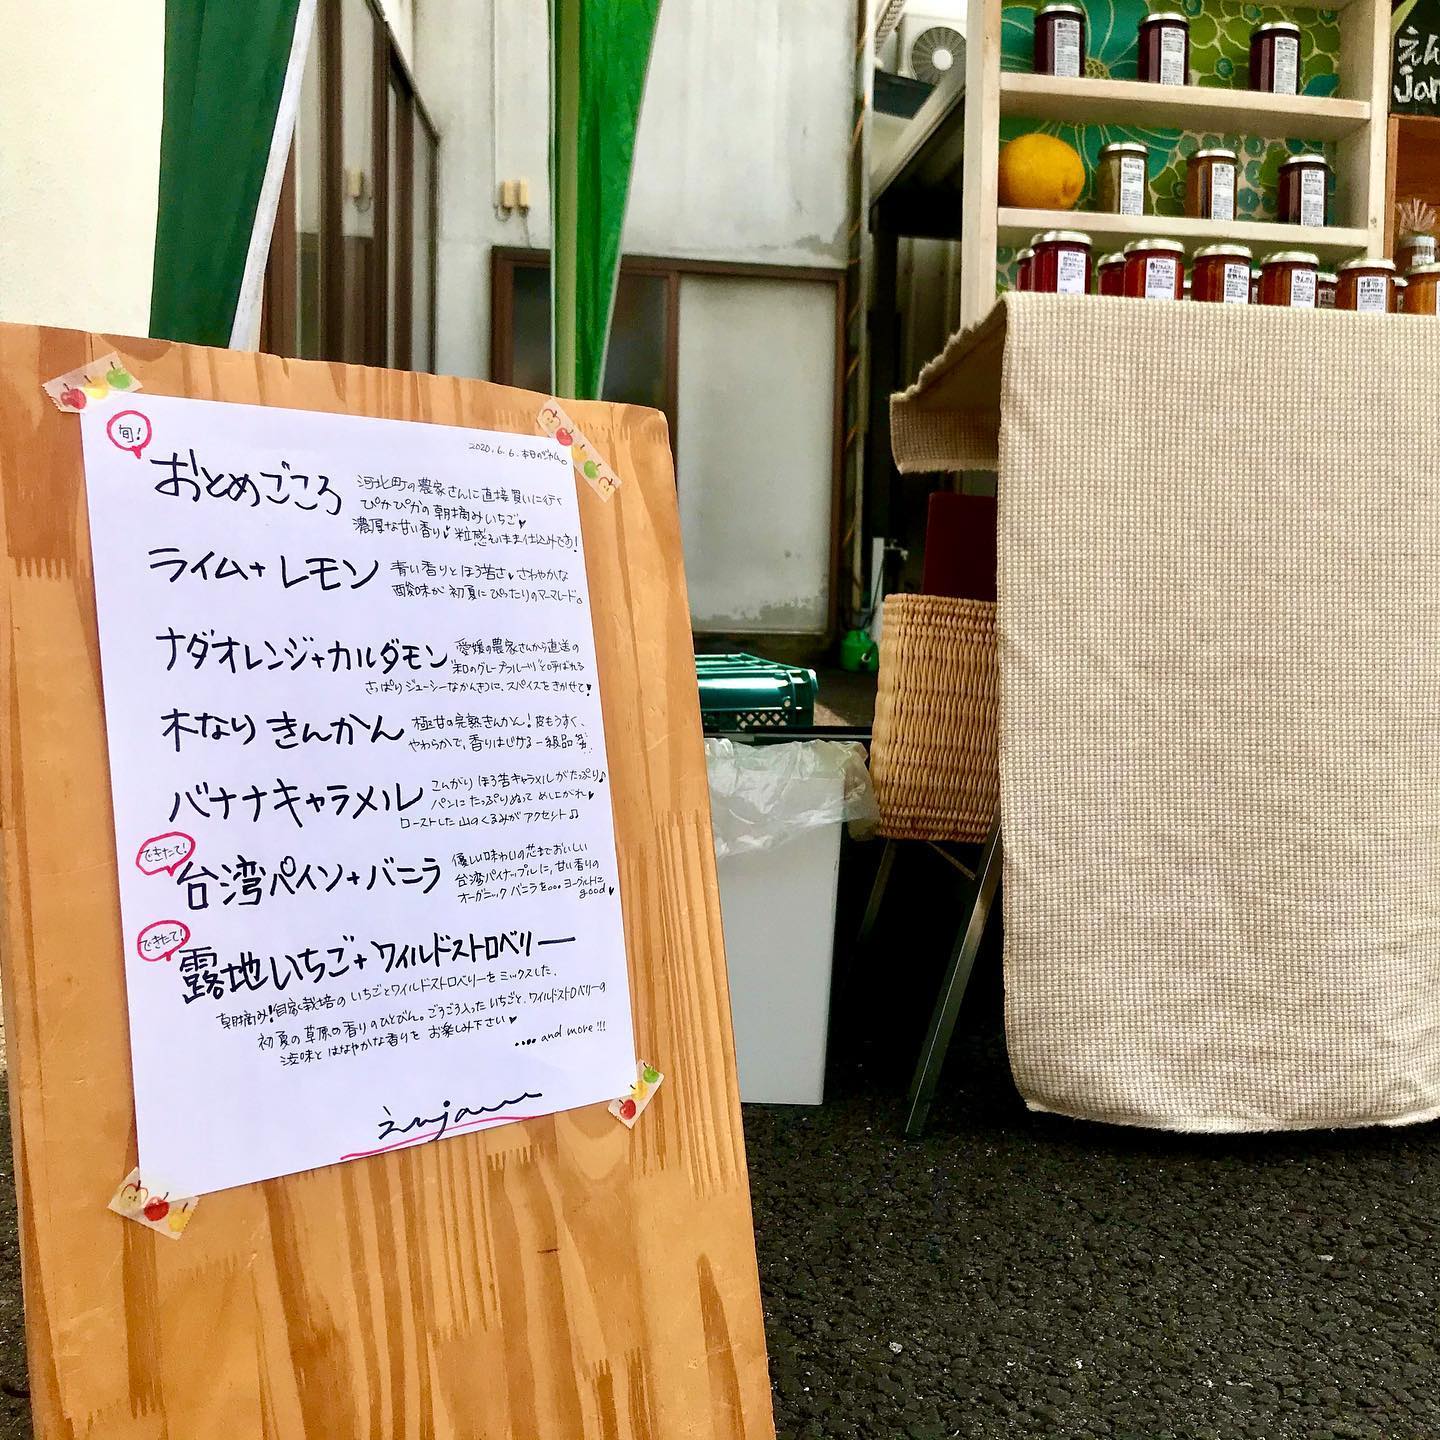 2020.6.6.本日のジャム。
旬!
おとめごころ
河北町の農家さんに直接買いに行く
ぴかぴかの朝摘みいちご♥
濃厚な甘い香り♥粒感そのまま仕込みです!
ライム+レモン
青い香りとほろ苦さ♥さわやかな
酸味が初夏にぴったりのマーマレード。
ナダオレンジ+カルダモン
愛媛の農家さんから直送の
"和のグレープフルーツ"と呼ばれる
さっぱりジューシーなかんきつに、スパイスをきかせて♥
木なりきんかん
極甘の完熟きんかん!皮もうすく、
やわらかで、香りはじける一級品
バナナキャラメル
こんがりほろ苦キャラメルがたっぷり♪
パンにたっぷりぬってめし上がれ♥
ローストした山のくるみがアクセント♫
できたて!
台湾パイン+バニラ
優しい味わいの芯までおいしい
台湾パイナップルに、甘い香りの
オーガニックバニラを…ヨーグルトに
good♥
できたて!
露地いちご+ワイルドストロベリー
朝摘み!自家栽培のいちごとワイルドストロベリーをミックスした、
初夏の草原の香りのひとびん。ごろごろ入ったいちごと、ワイルドストロベリーの
渋味とはなやかな香りをお楽しみ下さい♥
....and more!!!
えんjam
えん
jam
きんかん